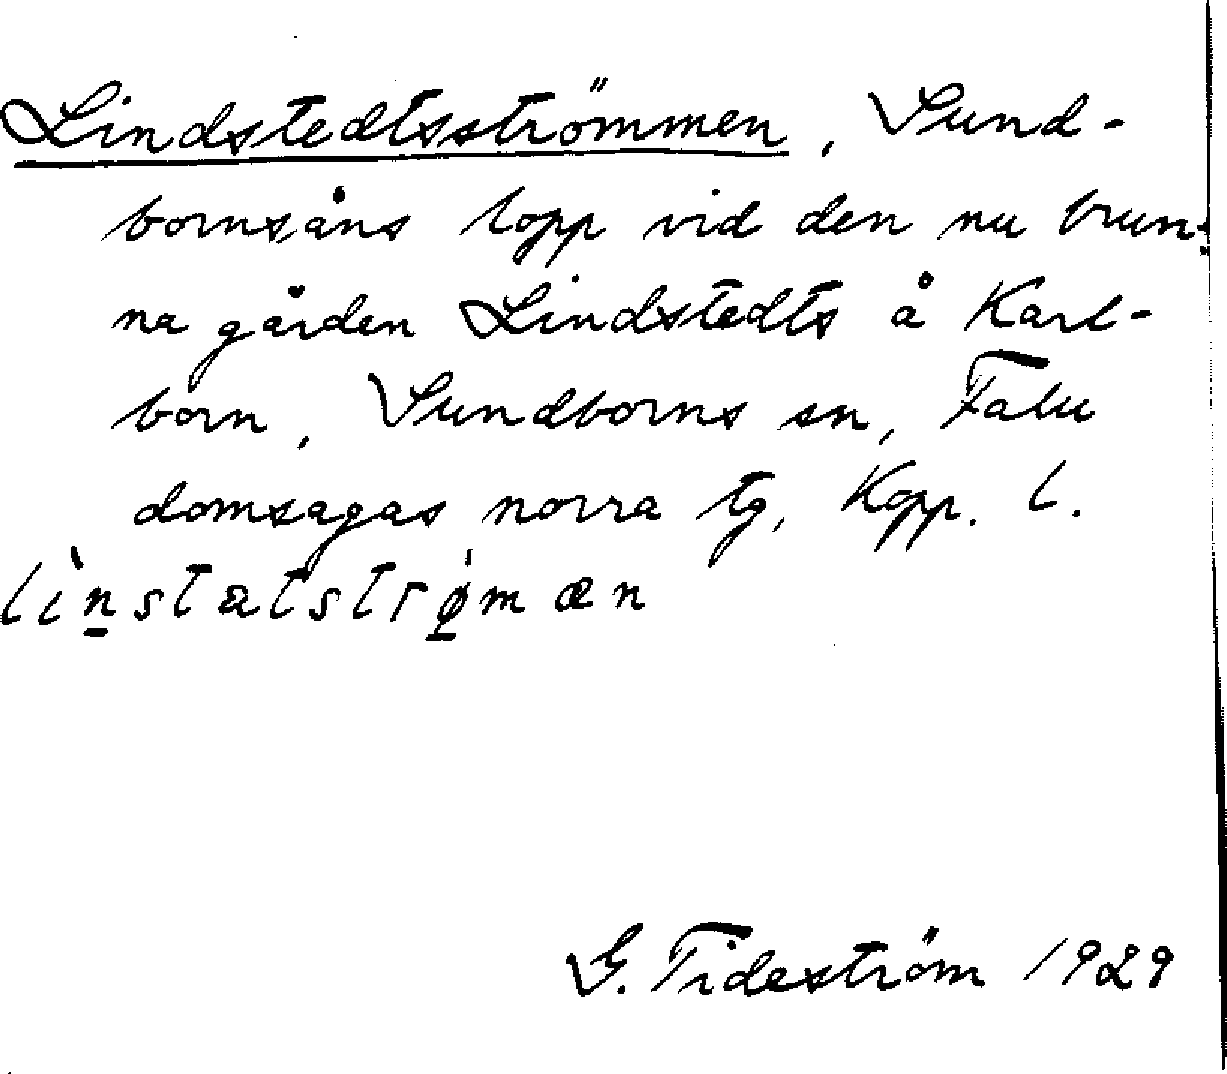 Lindstedtsströmmen, Sund-
bornsåns lopp vid den nu brun-
na gården Lindstedts å Karl-
born, Sundborns sn, Falu
domsagas norra tg, Kopp. l.
lìn̲statstrø̲̍mæn
G. Tideström 1929